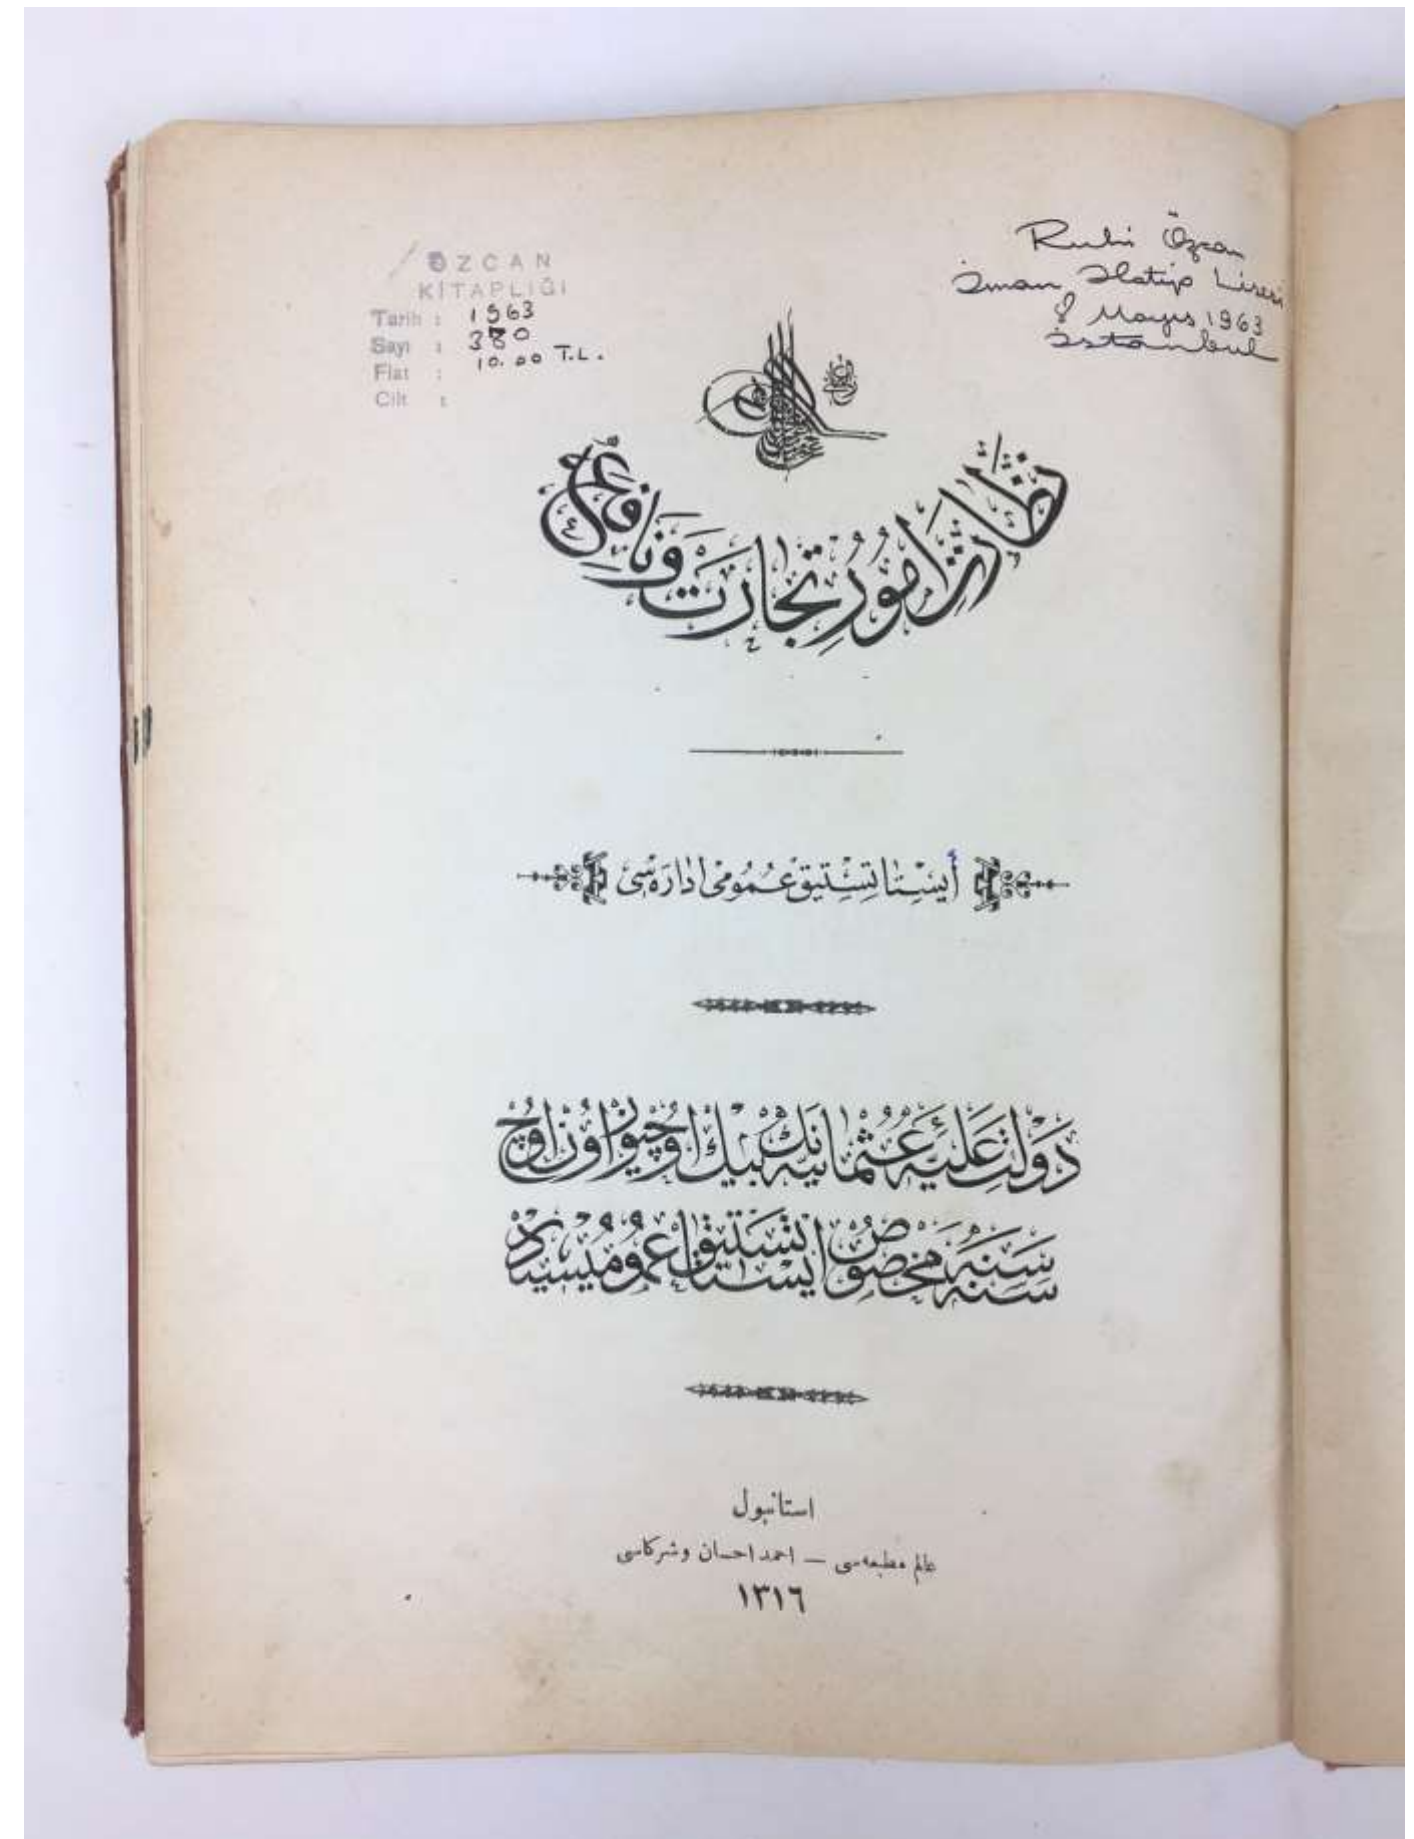 ÖZCAN
KİTAPLIĞI
Tarih : 1963
Sayı : 380
Fiat : 10.00 T.L.
Cilt :
Ruhi Özcan
İmam Hatip Lisesi
8 Mayıs 1963
İstanbul
نظارت امور تجارت و نافعه
أيستاتستيق عمومى اداره سى
دولت عليه عثمانيه نك بيك اوچيوز اون اوچ
سنه سنه مخصوص ايستاتستيق عموميسيدر
استانبول
عالم مطبعه سى — احمد احسان وشركاسى
١٣١٦